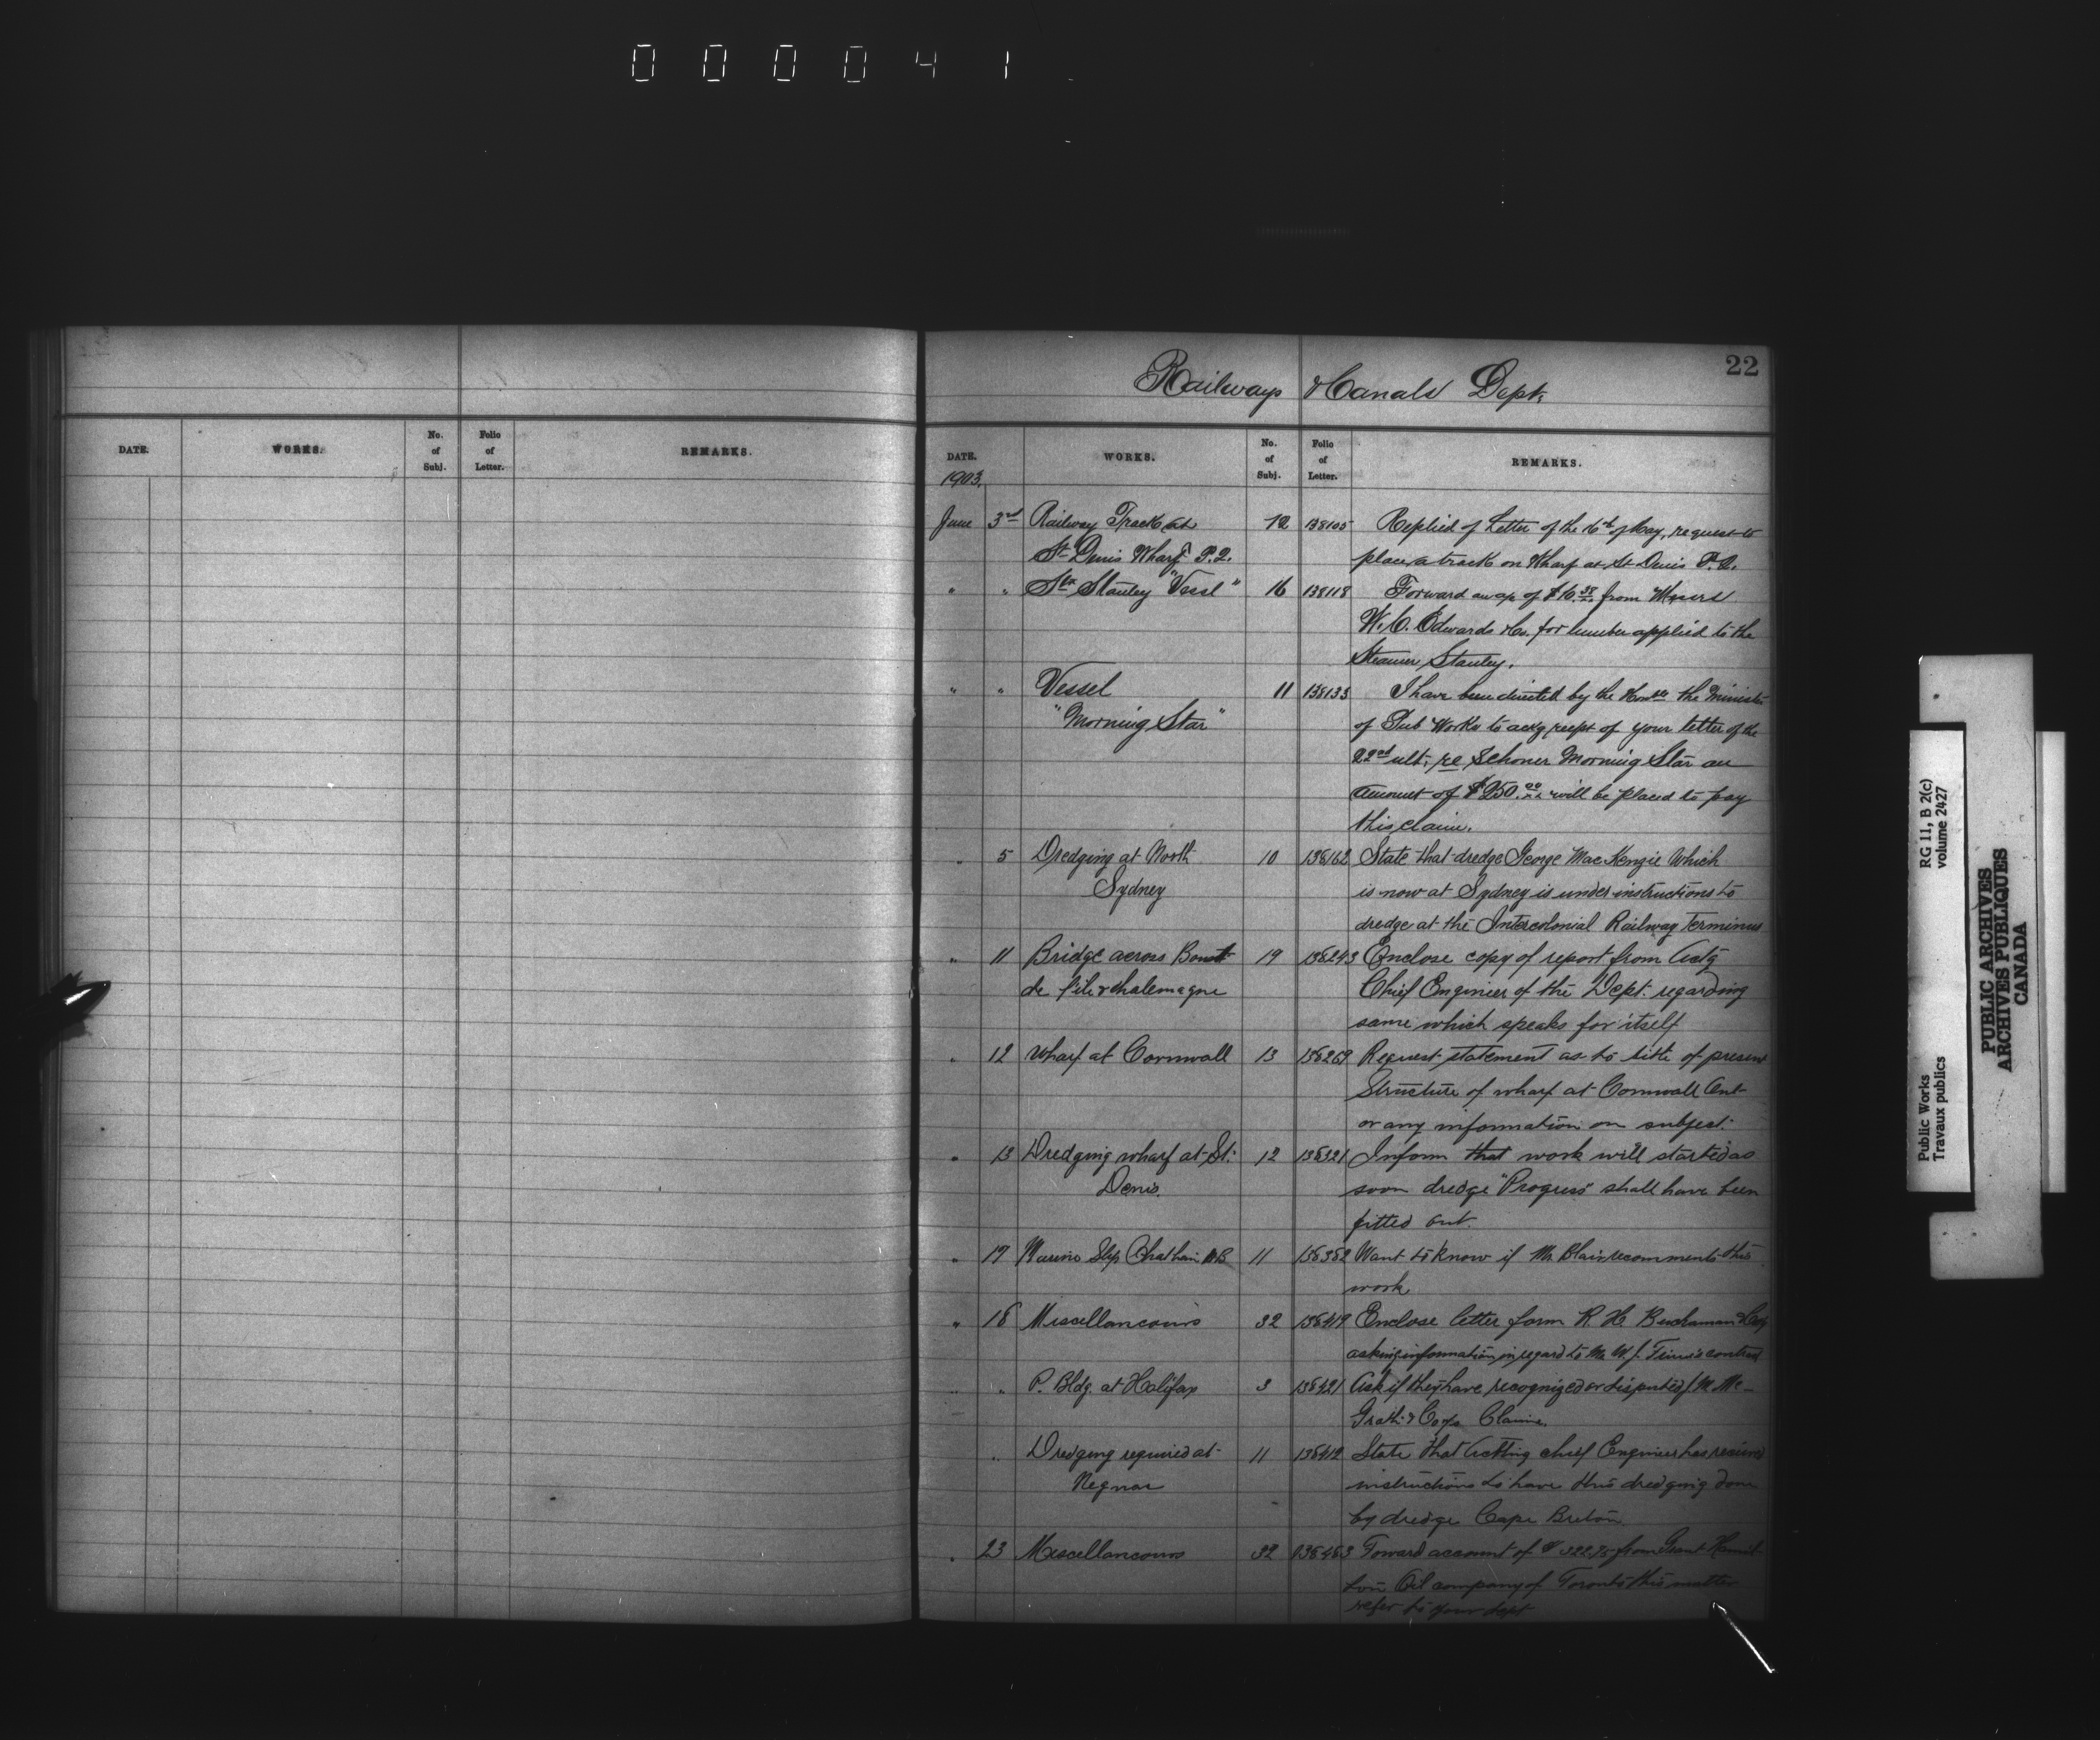 0 0 0 0 4 1
22
Railways & Canals Dept.
DATE. WORKS. No. of Subj. Folio of Letter. REMARKS.
DATE. WORKS. No. of Subj. Folio of Letter. REMARKS.
1903.
June 3rd Railway Track at 12 138105 Replied of Letter of the 16th of May, request to
St Denis Wharf P.Q. place a track on Wharf at St Denis P.Q.
" " Str Stanley "Vessl" 16 138118 Forward an a/c of $10.38 from Messrs
W. C. Edwards & Co. for lumber applied to the
Steamer Stanley.
" " Vessel 11 138133 I have been directed by the Honble the Minister
"Morning Star" of Pub Works to ackg recept of your letter of the
22nd ult; re Schoner Morning Star an
amount of $250.00 will be placed to pay
this claim.
" 5 Dredging at North 10 138162 State that dredge George MacKenzie Which
Sydney is now at Sydney is under instructions to
dredge at the Intercolonial Railway terminus
" 11 Bridge across Bout 19 138243 Enclose copy of report from Actg
de l'ile Chief Engineer of the Dept. regarding
same which speaks for itself
" 12 Wharf at Cornwall 13 138269 Request statement as to title of present
Structure of wharf at Cornwall Ont
or any information on subject.
" 13 Dredging wharf at St: 12 138321 Inform that work will started as
Denis. soon dredge "Progress" shall have been
fitted out.
" 17 Marine Slip Chatham NB 11 138382 Want to know if Mr Blair recomments this
work
" 18 Miscellaneous 32 138419 Enclose letter form R. H. Buchanan & Coy
asking information in regard to Mr W. J. contract
" " P. Bldg. at Halifax 3 138421 Ask if they have recognized or disputed J. M. Mc-
Grath & Coys Claims.
" Dredging required at 11 138412 State that Actting chief Engineer has received
Neguac instructions to have this dredging done
by dredge Cape Breton.
" 23 Miscellaneous 32 138463 Foward account of $322.75 from Grant Hamil-
ton Oil company of Toronto this matter
refer to your dept
RG 11, B 2(c)
volume 2427
Public Works
Travaux publics
PUBLIC ARCHIVES
ARCHIVES PUBLIQUES
CANADA